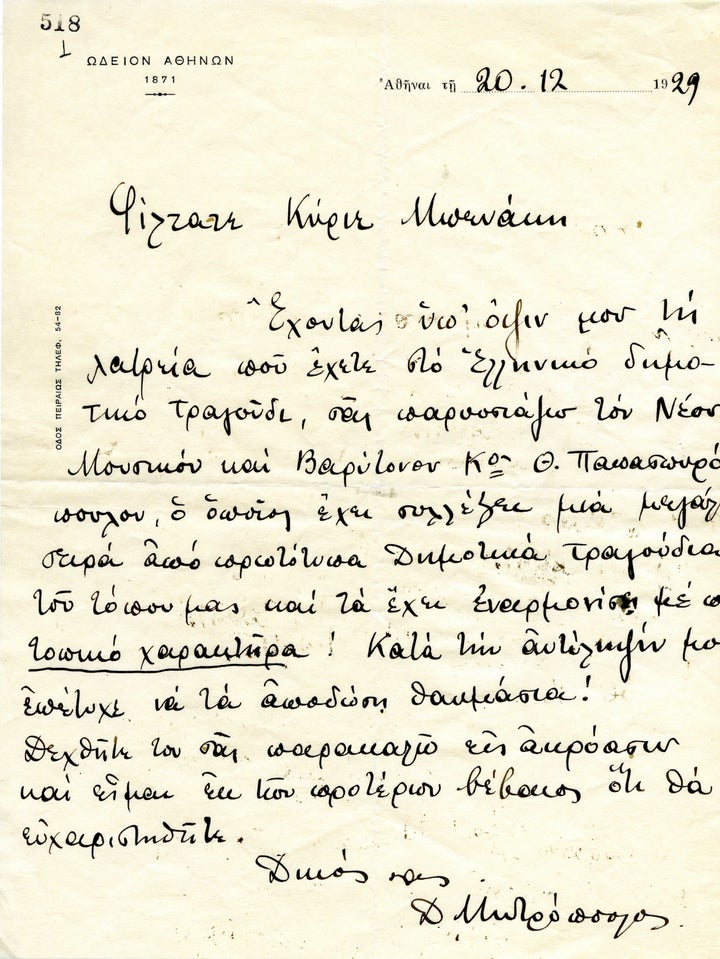 518
1
ΩΔΕΙΟΝ ΑΘΗΝΩΝ
1871
Ἀθῆναι τῇ 20.12 1929
Φίλτατε Κύριε Μπενάκη
Ἔχοντας ὑπ' ὄψιν μου τή
λατρεία ποῦ ἔχετε στό Ἑλληνικό δημο-
τικό τραγοῦδι, σᾶς παρουσιάζω τόν Νέον
Μουσικόν καί Βαρύτονον Κον Θ. Παπασπυρό
πουλον, ὁ ὁποῖος ἔχει συλλέξει μιά μεγάλ
σειρά ἀπό πρωτότυπα Δημοτικά τραγούδια
τοῦ τόπου μας καί τά ἔχει ἐναρμονίσει μέ
τοπικό χαρακτῆρα! Κατά τήν ἀντίληψίν μο
ἐπέτυχε νά τά ἀποδώσῃ θαυμάσια!
Δεχθῆτε τον σᾶς παρακαλῶ εἰς ἀκρόασιν
καί εἶμαι ἐκ τῶν προτέρων βέβαιος ὅτι θά
εὐχαριστηθῆτε.
Δικός σας
Δ Μητρόπουλος
ΟΔΟΣ ΠΕΙΡΑΙΩΣ ΤΗΛΕΦ. 54-82